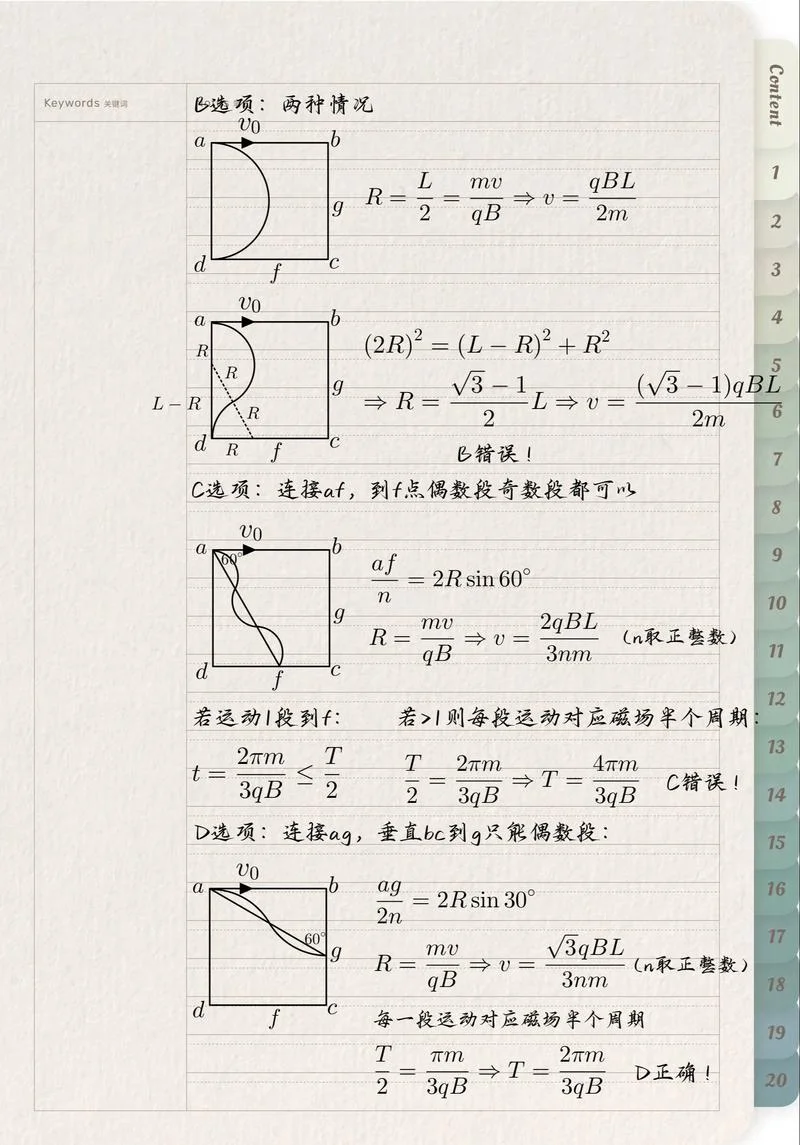 Keywords 关键词
B选项：两种情况
v₀
a b
g
d f c
R = L/2 = mv/qB ⇒ v = qBL/2m
v₀
a b
R
R
g
L − R
R
d R f c
(2R)² = (L − R)² + R²
⇒ R = (√3 − 1)/2 L ⇒ v = (√3 − 1)qBL/2m
B错误！
C选项：连接af，到f点偶数段奇数段都可以
v₀
a b
60°
g
d f c
af/n = 2R sin 60°
R = mv/qB ⇒ v = 2qBL/3nm （n取正整数）
若运动1段到f： 若>1则每段运动对应磁场半个周期：
t = 2πm/3qB ≤ T/2 T/2 = 2πm/3qB ⇒ T = 4πm/3qB C错误！
D选项：连接ag，垂直bc到g只能偶数段：
v₀
a b
60°
g
d f c
ag/2n = 2R sin 30°
R = mv/qB ⇒ v = √3qBL/3nm （n取正整数）
每一段运动对应磁场半个周期
T/2 = πm/3qB ⇒ T = 2πm/3qB D正确！
Content
1
2
3
4
5
6
7
8
9
10
11
12
13
14
15
16
17
18
19
20